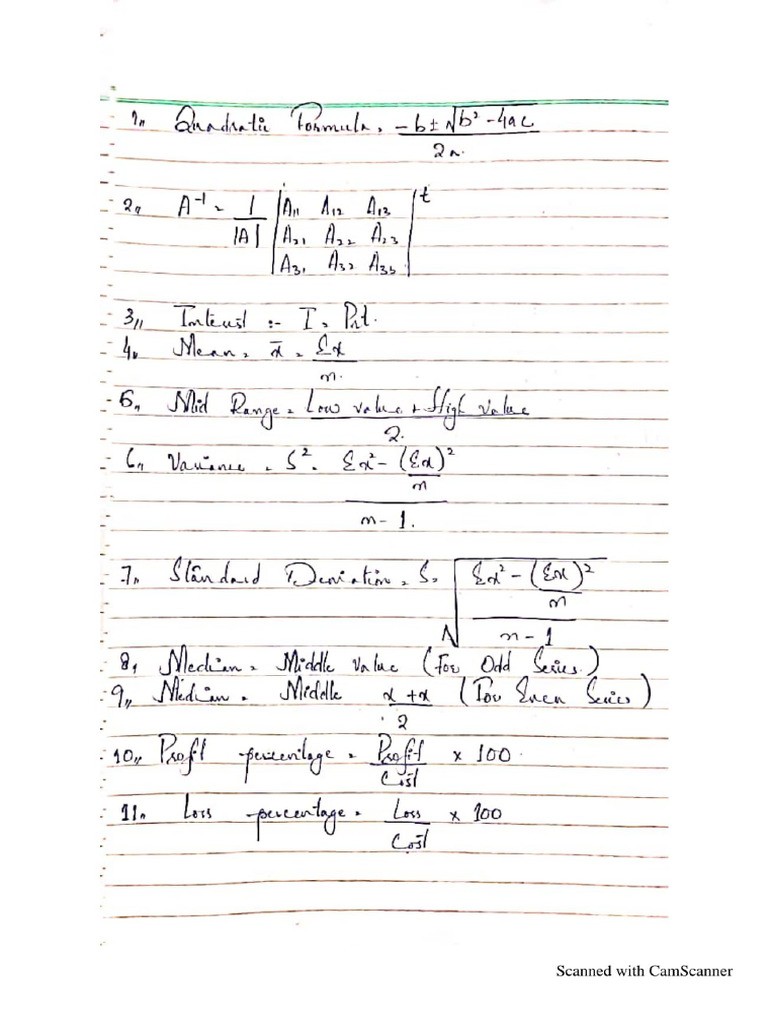 1,, Quadratic Formula = -b ± √b² - 4ac
2a
2,, A⁻¹ = 1/|A| |A11 A12 A13|ᵗ
A21 A22 A23
A31 A32 A33
3,, Interest :- I = Prt.
4,, Mean = x̄ = Σx
n.
5,, Mid Range = Low value + High value
2.
6,, Variance = S² = Σx² - (Σx)²
n
n - 1.
7,, Standard Deviation = S = √ Σx² - (Σx)²
n
n - 1
8, Median = Middle value (For Odd Series)
9,, Median = Middle x + x (For Even Series)
2
10,, Profit percentage = Profit × 100
Cost
11,, Loss percentage = Loss × 100
Cost
Scanned with CamScanner